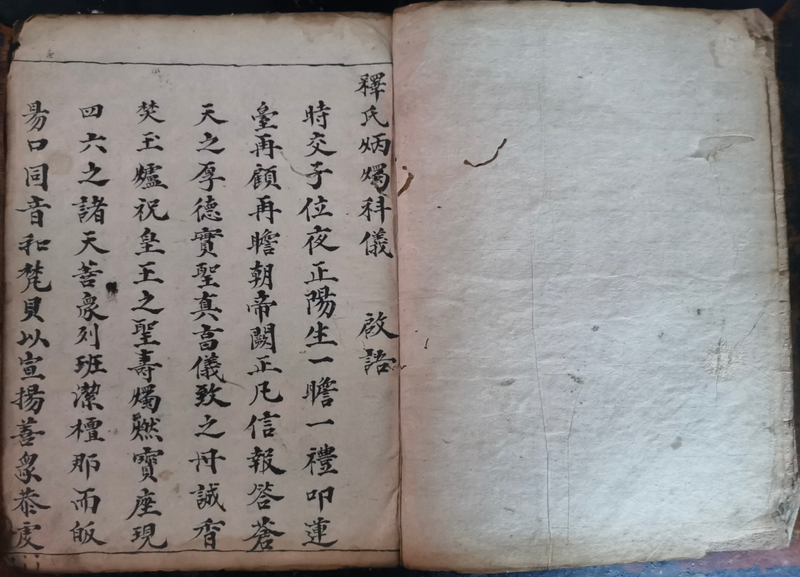 釋氏炳燭科儀 啟語
時交子位夜正陽生一瞻一禮叩蓮
臺再顧再瞻朝帝闕正凡信報答蒼
天之厚德實聖真高儀致之丹誠香
焚玉爐祝皇王之聖壽燭燃寶座現
四六之諸天菩衆列班潔檀那而皈
昜口同音和梵貝以宣揚善衆恭虔